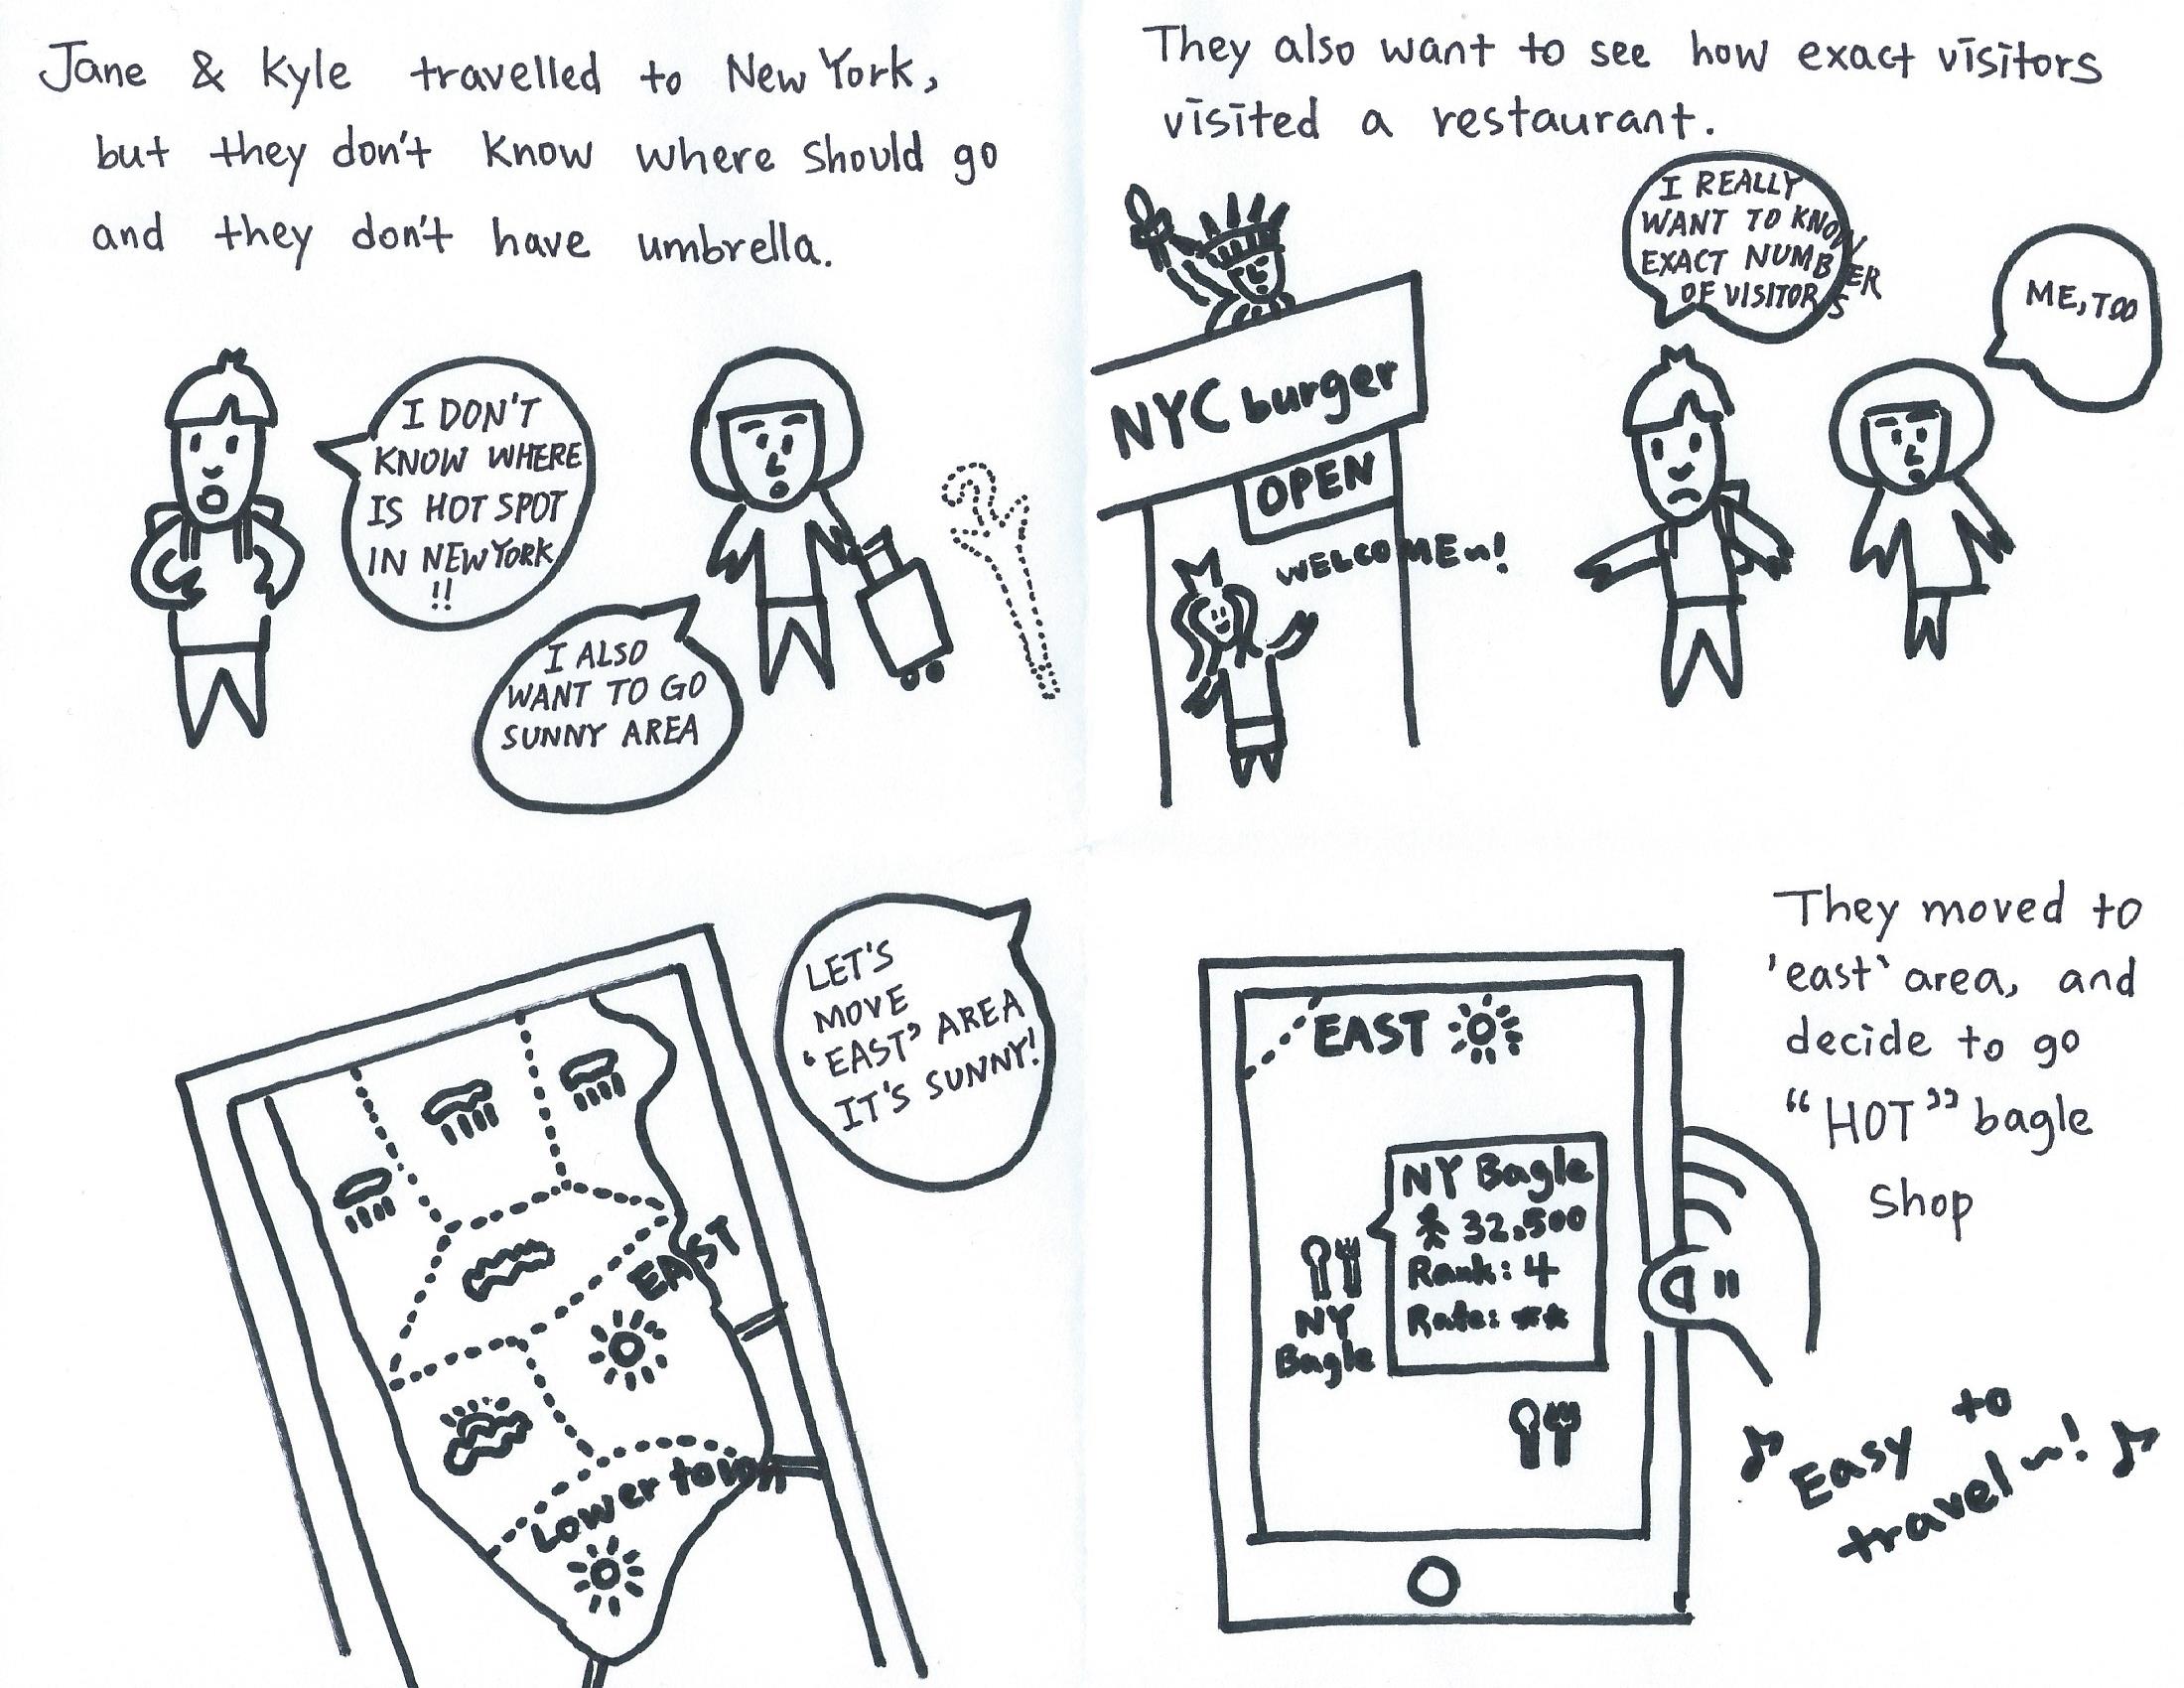 Jane & Kyle travelled to New York,
but they don't know where should go
and they don't have umbrella.
I DON'T
KNOW WHERE
IS HOT SPOT
IN NEW YORK
!!
I ALSO
WANT TO GO
SUNNY AREA
They also want to see how exact visitors
visited a restaurant.
I REALLY
WANT TO KNOW
EXACT NUMBER
OF VISITORS
ME, TOO
NYC burger
OPEN
WELCOME~!
LET'S
MOVE
'EAST' AREA
IT'S SUNNY!
EAST
Lower town
They moved to
'east' area, and
decide to go
"HOT" bagle
shop
EAST
NY Bagle
32,500
Rank: 4
Rate: **
NY
Bagle
♪ Easy to
travel~! ♪